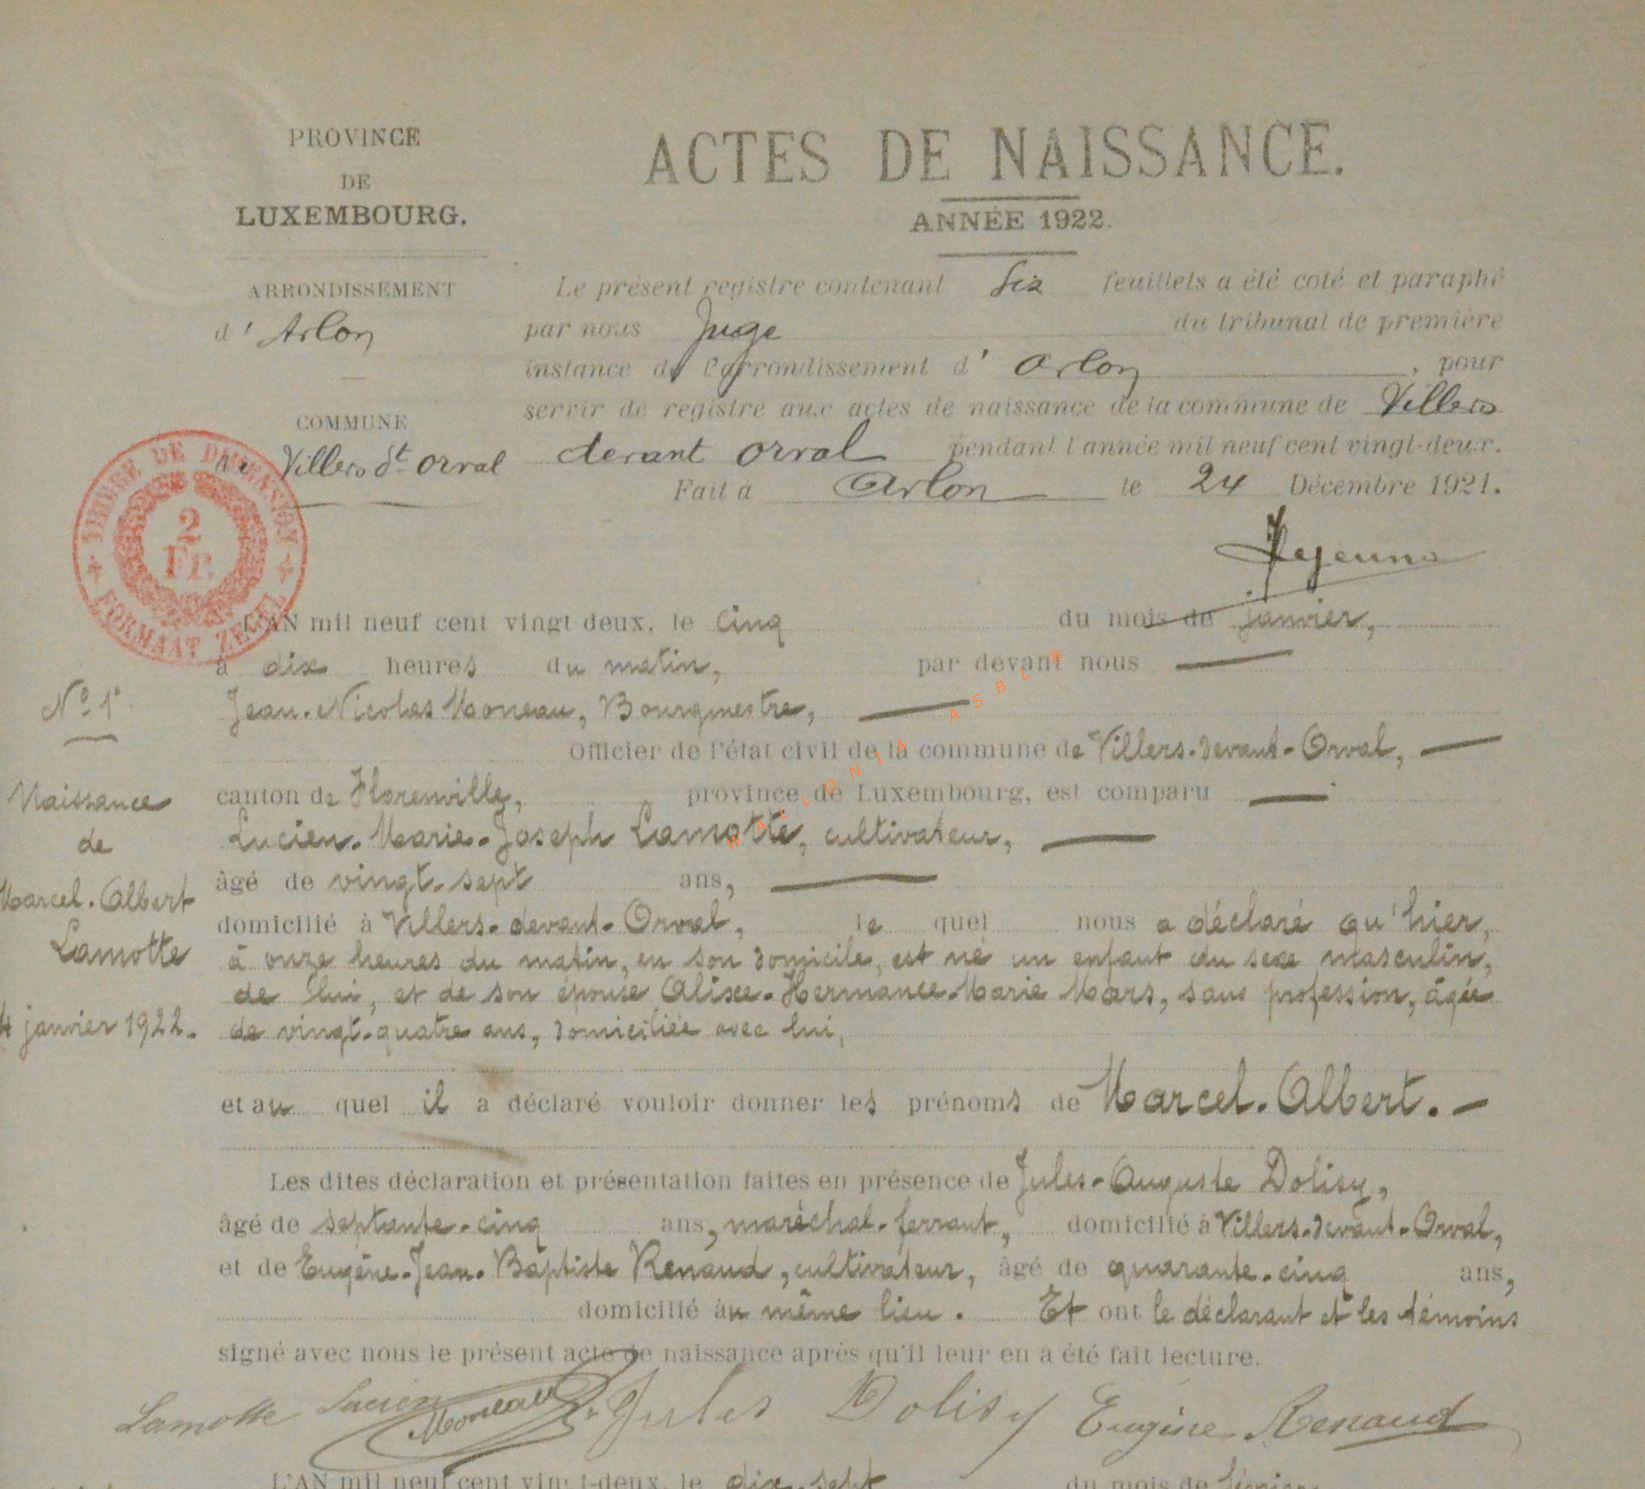 PROVINCE
DE
LUXEMBOURG.
ARRONDISSEMENT
d' Arlon
COMMUNE
de Villers dt Orval
TIMBRE DE DIMENSION
2
FR.
FORMAAT ZEGEL
ACTES DE NAISSANCE.
ANNÉE 1922.
Le présent registre contenant six feuillets a été coté et paraphé
par nous Juge du tribunal de première
instance de l'arrondissement d' Arlon, pour
servir de registre aux actes de naissance de la commune de Villers
devant Orval pendant l'année mil neuf cent vingt-deux.
Fait à Arlon le 24 Décembre 1921.
No 1
Naissance
de
Marcel-Albert
Lamotte
4 janvier 1922.
L'AN mil neuf cent vingt-deux, le cinq du mois de janvier,
à dix heures du matin, par devant nous
Jean-Nicolas Moneau, Bourgmestre,
Officier de l'état civil de la commune de Villers-devant-Orval,
canton de Florenville, province de Luxembourg, est comparu
Lucien-Marie-Joseph Lamotte, cultivateur,
âgé de vingt-sept ans,
domicilié à Villers-devant-Orval, le quel nous a déclaré qu'hier,
à onze heures du matin, en son domicile, est né un enfant du sexe masculin,
de lui, et de son épouse Alixe-Hermance-Marie Mars, sans profession, âgée
de vingt-quatre ans, domiciliée avec lui,
et au quel il a déclaré vouloir donner les prénoms de Marcel-Albert.
Les dites déclaration et présentation faites en présence de Jules-Auguste Dolisy,
âgé de septante-cinq ans, maréchal-ferrant, domicilié à Villers-devant-Orval,
et de Eugène-Jean-Baptiste Renaud, cultivateur, âgé de quarante-cinq ans,
domicilié au même lieu. Et ont le déclarant et les témoins
signé avec nous le présent acte de naissance après qu'il leur en a été fait lecture.
Lamotte Lucien Moneau Jules Dolisy Eugène Renaud
L'AN mil neuf cent vingt-deux, le dix-sept du mois de février
WALLONIA ASBL ©